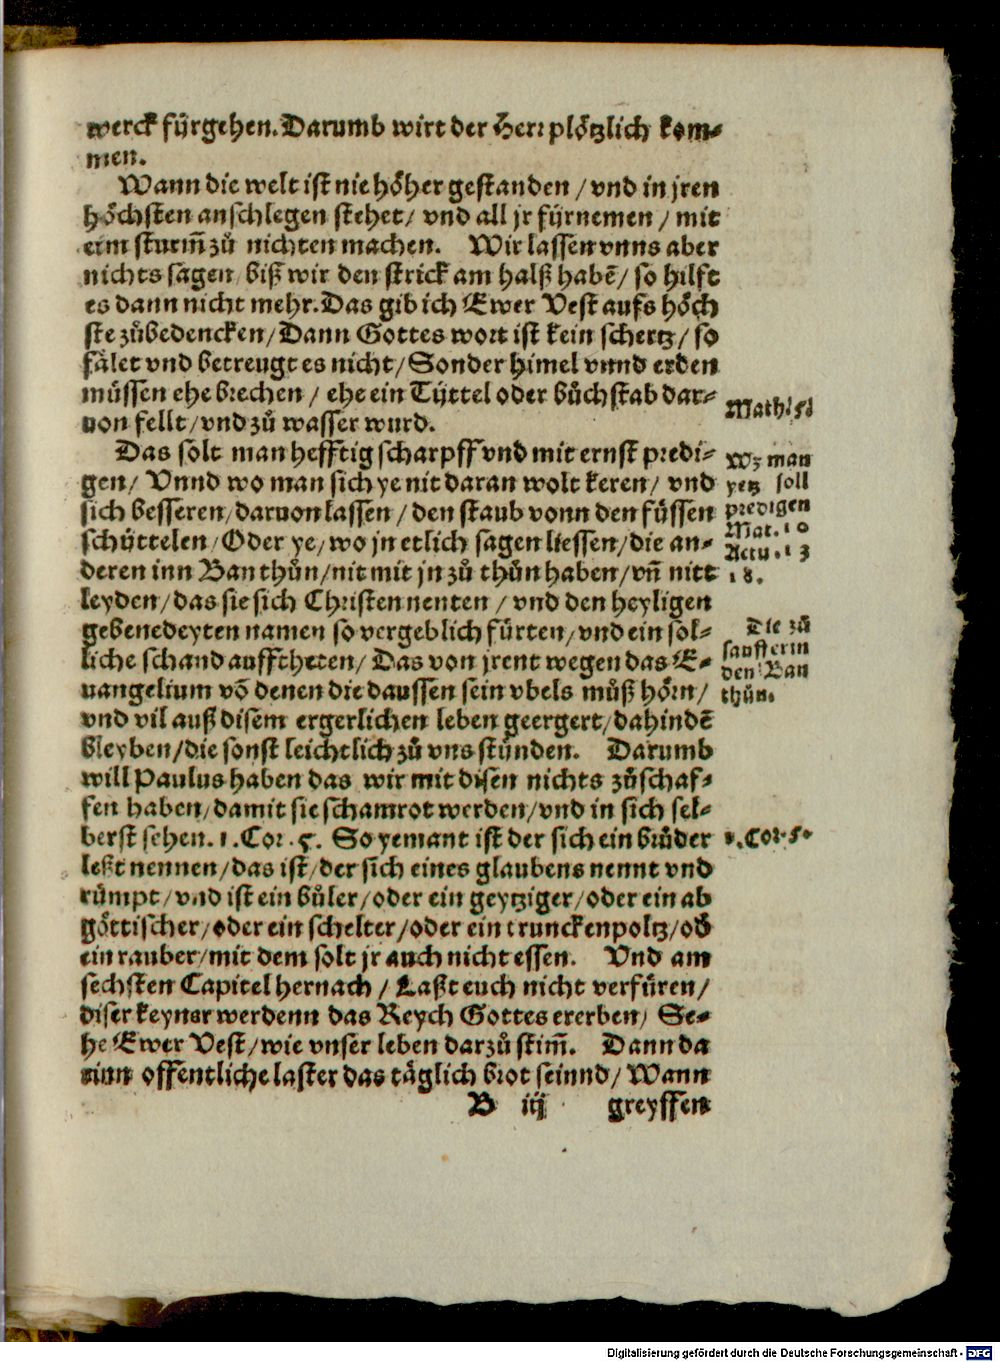 werck fürgehen. Darumb wirt der Herr plötzlich kom-
men.
Wann die welt ist nie höher gestanden / vnd in jren
höchsten anschlegen stehet / vnd all jr fürnemen / mit
eim sturm̃ zů nichten machen. Wir lassen vnns aber
nichts sagen biß wir den strick am halß habẽ / so hilft
es dann nicht mehr. Das gib ich Ewer Vest aufs höch
ste zůbedencken / Dann Gottes wort ist kein schertz / so
fälet vnd betreugt es nicht / Sonder himel vnnd erden
müssen ehe brechen / ehe ein Tÿttel oder bůchstab dar-
uon fellt / vnd zů wasser wurd.
Math. 5
Das solt man hefftig scharpff vnd mit ernst predi-
gen / Vnnd wo man sich ye nit daran wolt keren / vnd
sich besseren / daruon lassen / den staub vonn den füssen
schüttelen / Oder ye / wo jn etlich sagen liessen / die an-
deren inn Ban thůn / nit mit jn zů thůn haben / vñ nitt
leyden / das sie sich Christen nenten / vnd den heyligen
gebenedeyten namen so vergeblich fürten / vnd ein sol-
liche schand auffthetten / Das von jrent wegen das E-
uangelium võ denen die daussen sein vbels můß hörn /
vnd vil auß disem ergerlichen leben geergert / dahindẽ
bleyben / die sonst leichtlich zů vns stünden. Darumb
will Paulus haben das wir mit disen nichts zůschaf-
fen haben / damit sie schamrot werden / vnd in sich sel-
berst sehen. 1. Cor. 5. So yemant ist der sich ein brůder
leßt nennen / das ist / der sich eines glaubens nennt vnd
rümpt / vnd ist ein bůler / oder ein geytziger / oder ein ab
göttischer / oder ein schelter / oder ein trunckenpoltz / od̓
ein rauber / mit dem solt jr auch nicht essen. Vnd am
sechsten Capitel hernach / Laßt euch nicht verfüren /
diser keyner werdenn das Reych Gottes ererben / Se-
he Ewer Vest / wie vnser leben darzů stim̃. Dann da
einn offentliche laster das täglich brot seinnd / Wann
B iij greyssen
Wz man
yetz soll
predigen
Mat. 10
Actu. 13
18.
Die zů
saufft erin
den Ban
thůn.
1. Cor. 5.
Digitalisierung gefördert durch die Deutsche Forschungsgemeinschaft - DFG